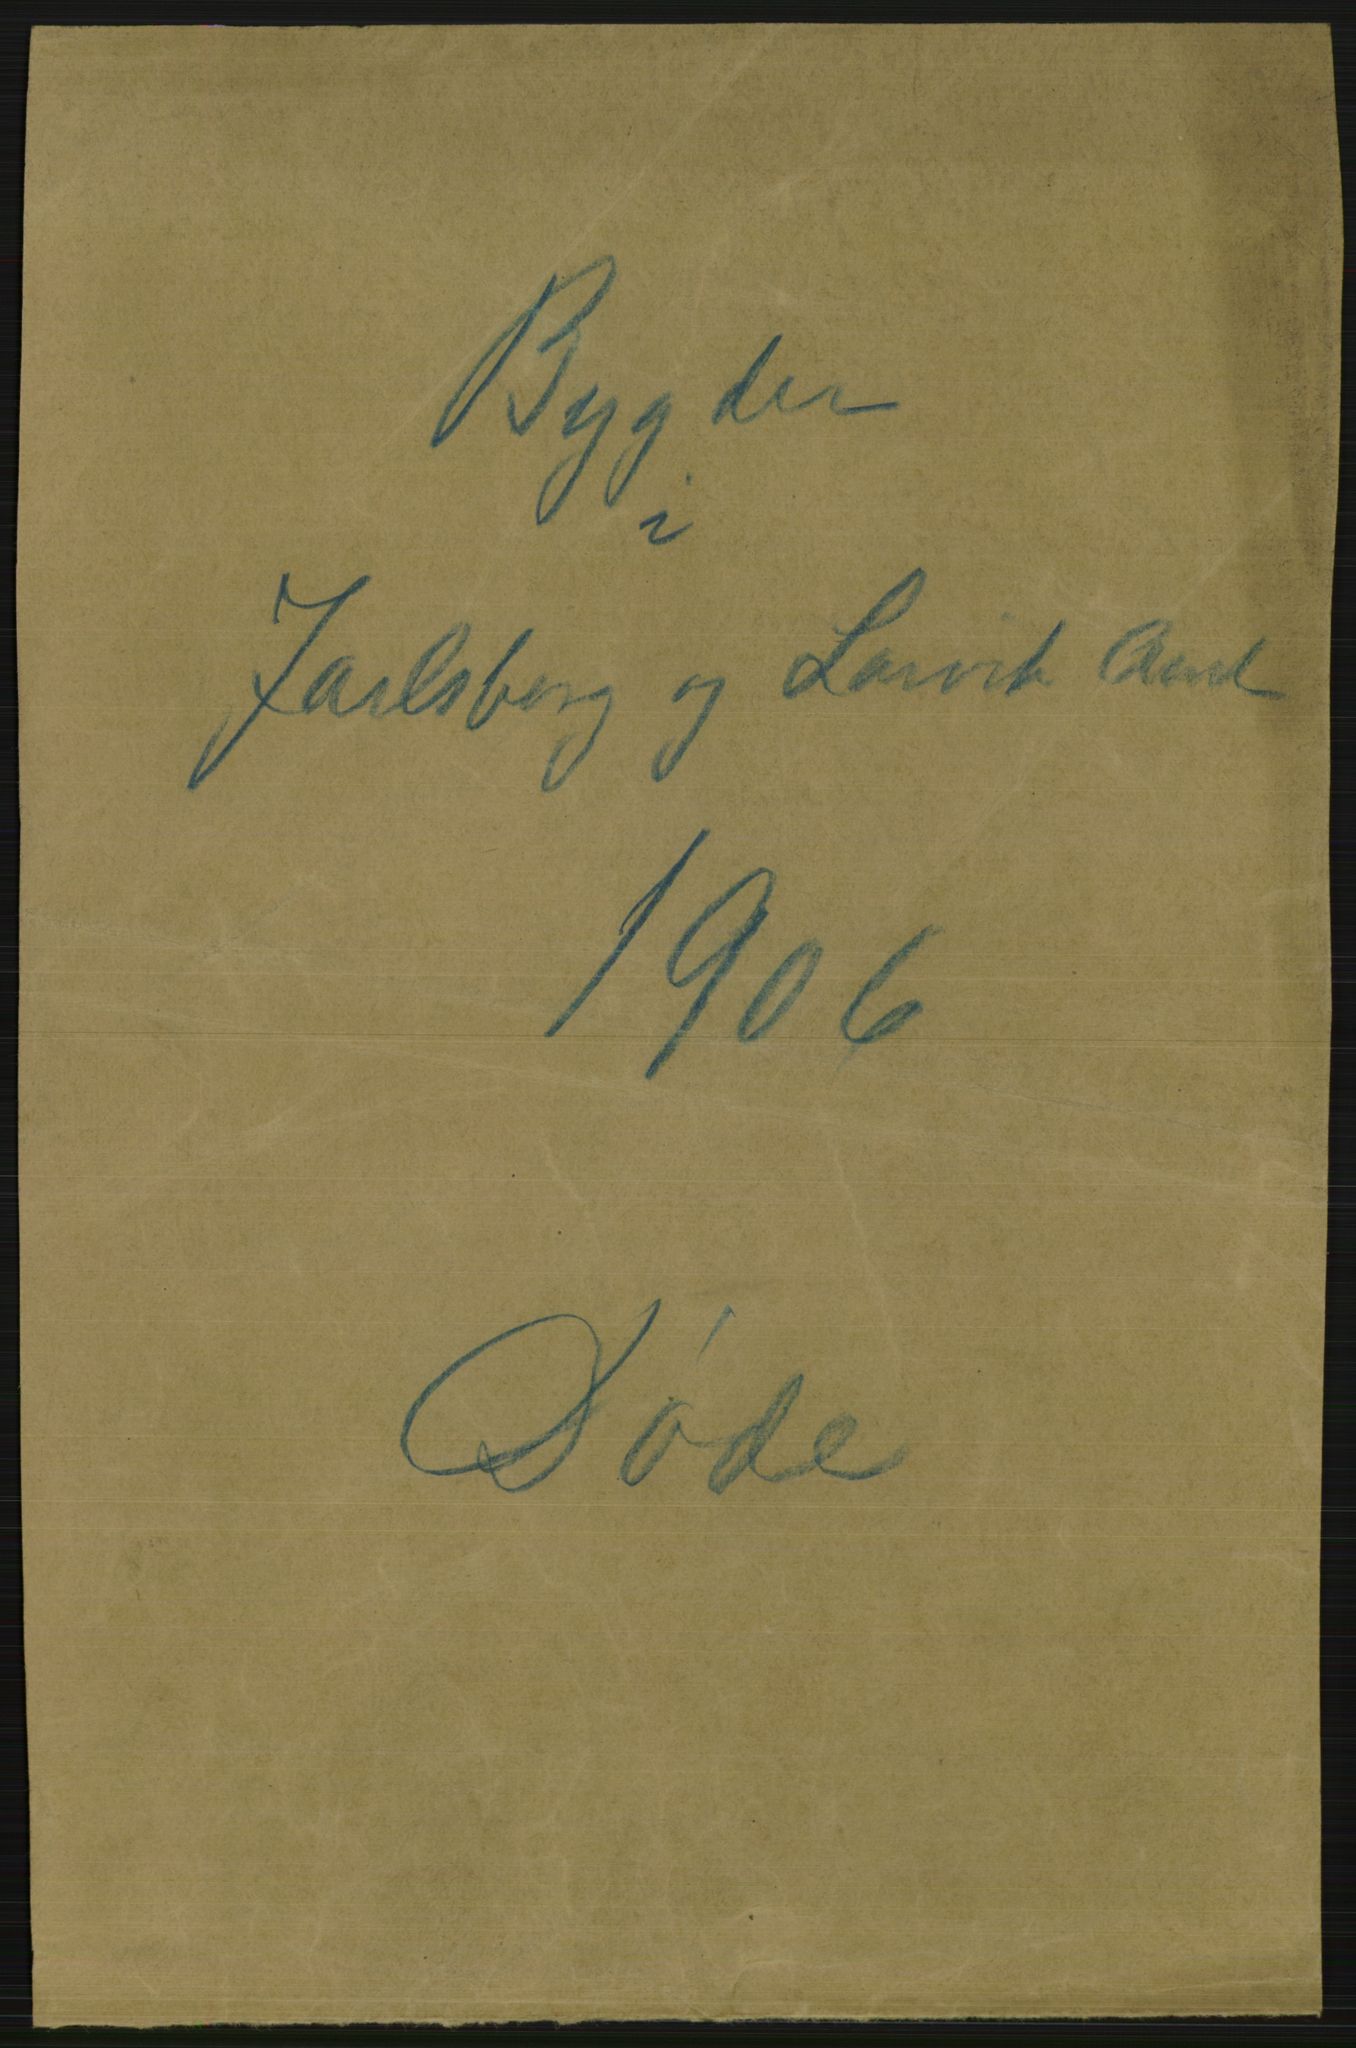 Bygder
i
Jarlsberg og Larvik Amt
1906
Døde